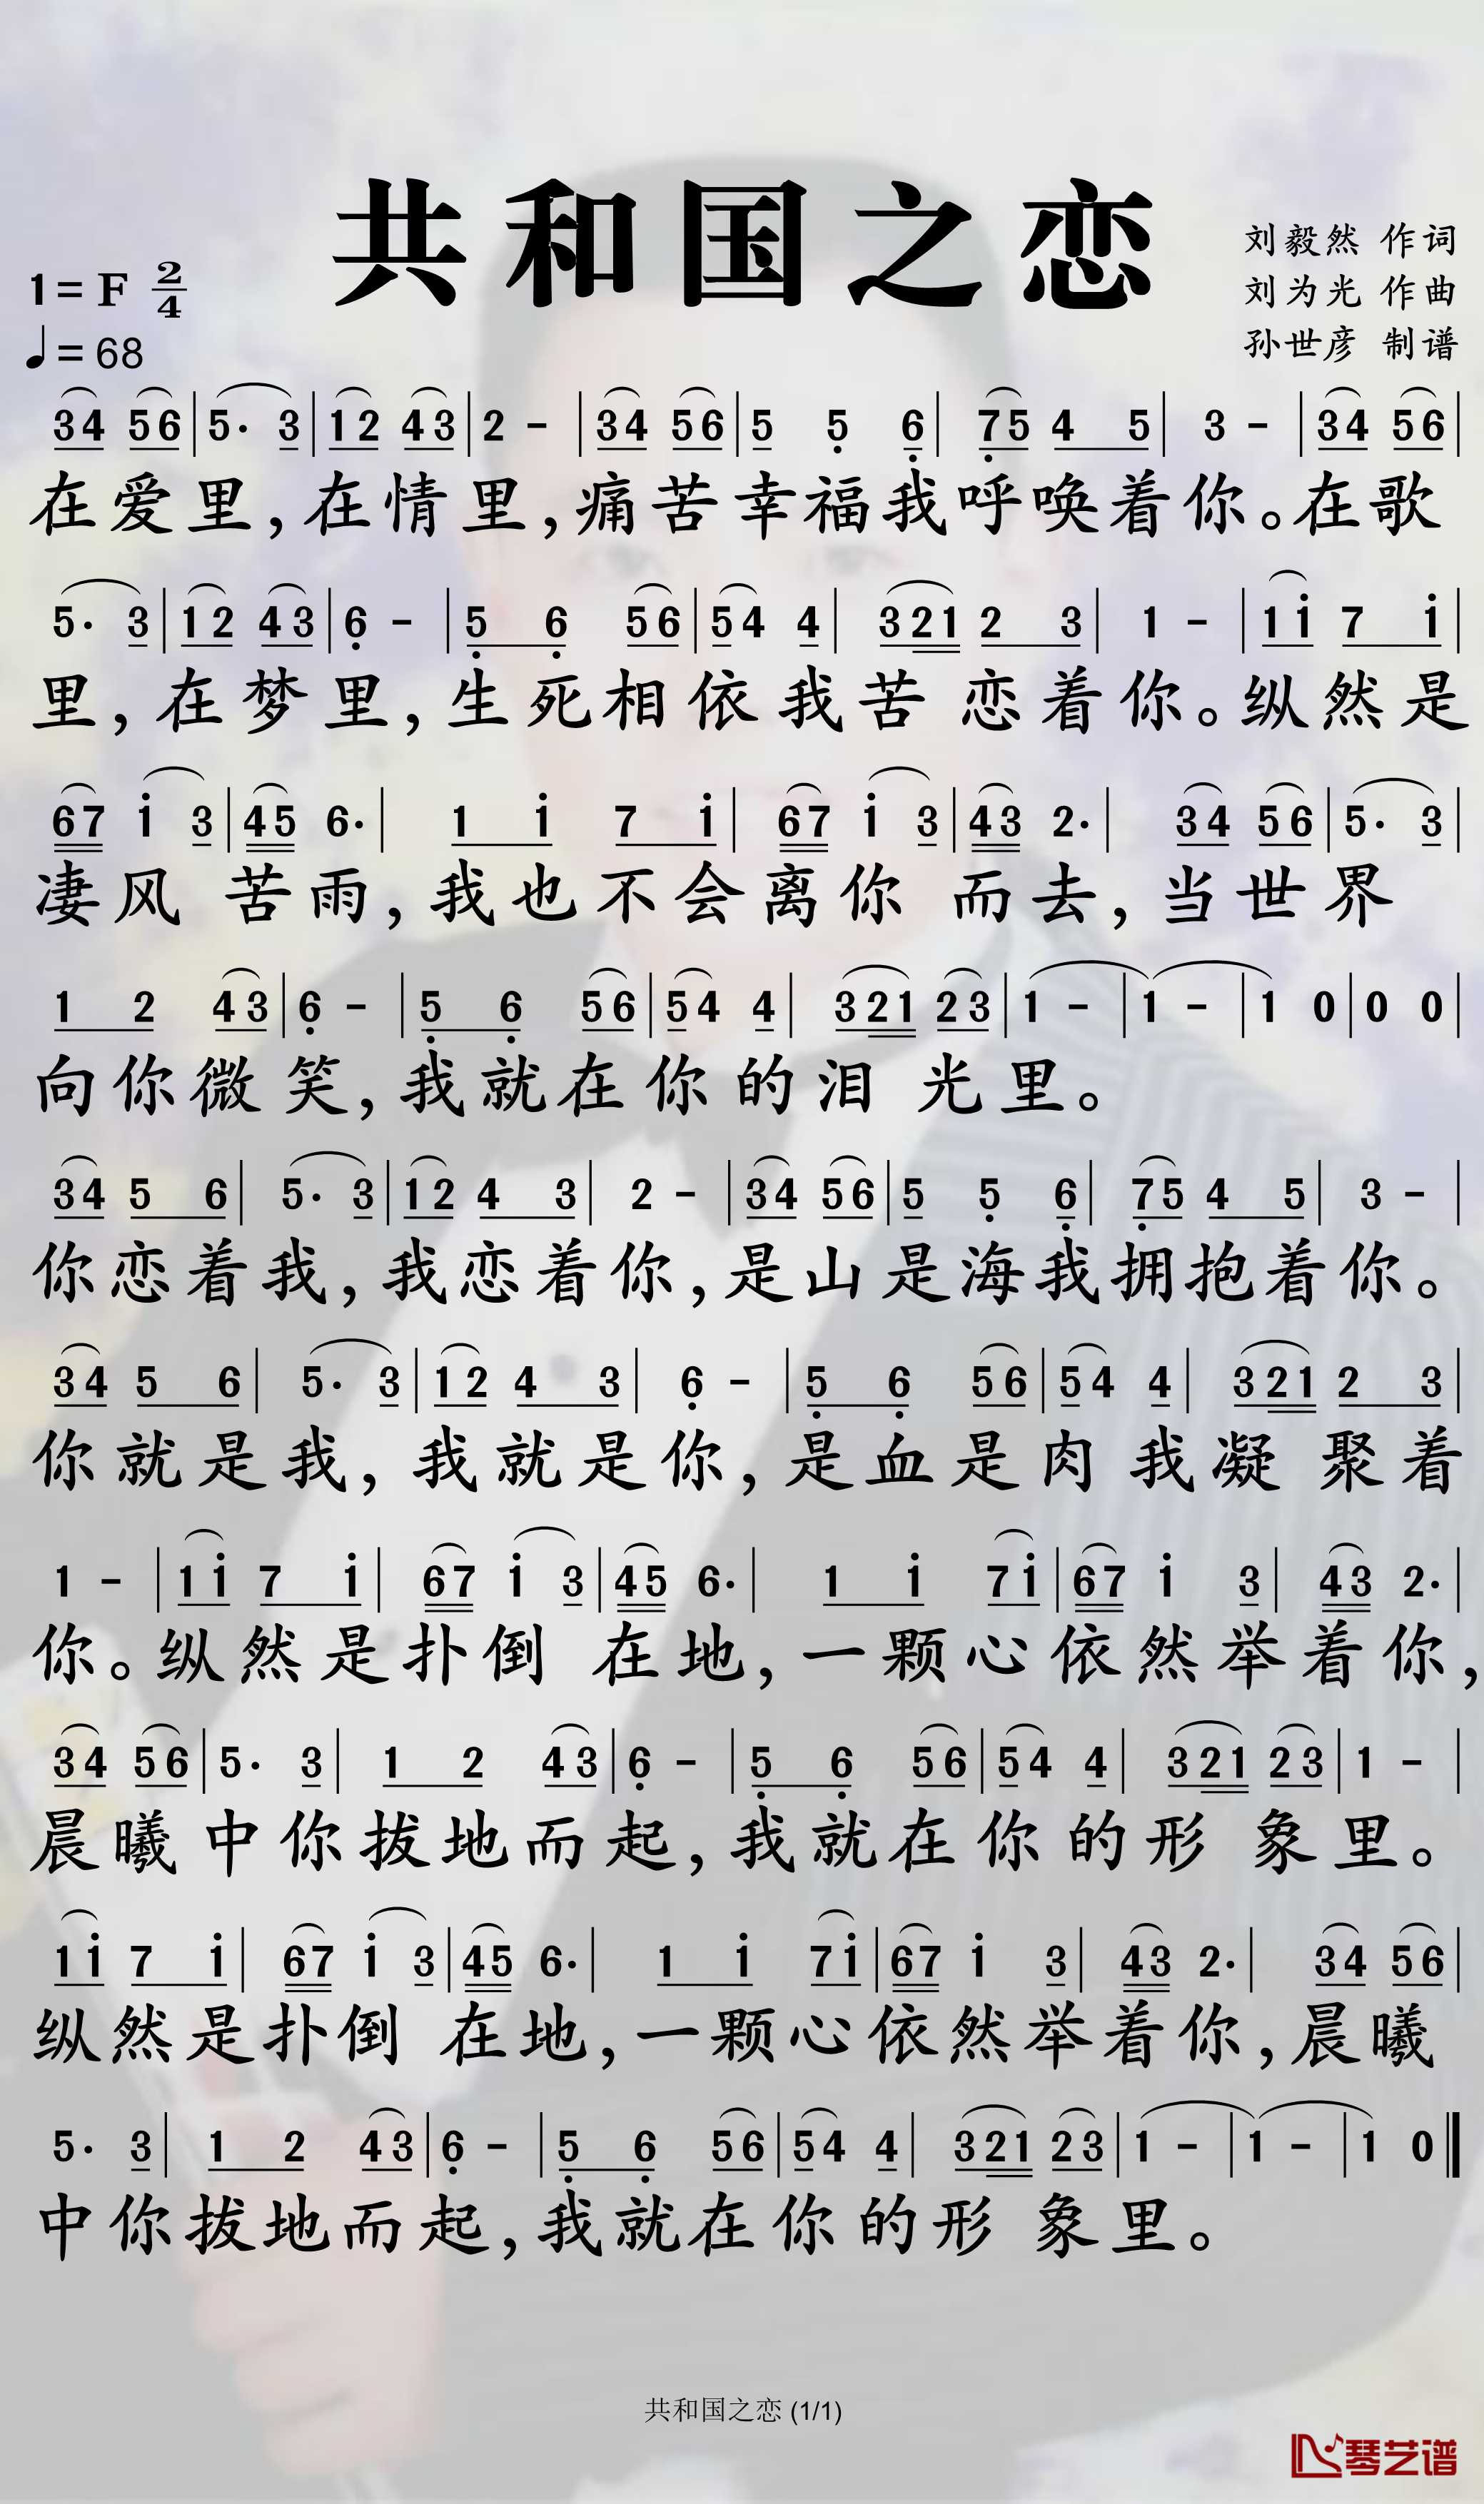 共和国之恋
刘毅然 作词
1=F 2/4
刘为光 作曲
♩=68
孙世彦 制谱
34 56 | 5· 3 | 12 43 | 2 - | 34 56 | 5 5̣ 6̣ | 7̣5 4 5 | 3 - | 34 56 |
在爱里,在情里,痛苦幸福我呼唤着你。在歌
5· 3 | 12 43 | 6̣ - | 5̣ 6̣ 56 | 54 4 | 321 2 3 | 1 - | 1i 7 i |
里,在梦里,生死相依我苦 恋着你。纵然是
67 i 3 | 45 6· | 1 i 7 i | 67 i 3 | 43 2· | 34 56 | 5· 3 |
凄风 苦雨,我也不会离你 而去,当世界
1 2 43 | 6̣ - | 5̣ 6̣ 56 | 54 4 | 321 23 | 1 - | 1 - | 1 0 | 0 0 |
向你微笑,我就在你的泪 光里。
34 5 6 | 5· 3 | 12 4 3 | 2 - | 34 56 | 5 5̣ 6̣ | 7̣5 4 5 | 3 - |
你恋着我,我恋着你,是山是海我拥抱着你。
34 5 6 | 5· 3 | 12 4 3 | 6̣ - | 5̣ 6̣ 56 | 54 4 | 321 2 3 |
你就是我,我就是你,是血是肉 我凝 聚着
1 - | 1i 7 i | 67 i 3 | 45 6· | 1 i 7i | 67 i 3 | 43 2· |
你。纵然是扑倒 在地,一颗心依然举着你,
34 56 | 5· 3 | 1 2 43 | 6̣ - | 5̣ 6̣ 56 | 54 4 | 321 23 | 1 - |
晨曦中你拔地而起,我就在你的形 象里。
1i 7 i | 67 i 3 | 45 6· | 1 i 7i | 67 i 3 | 43 2· | 34 56 |
纵然是扑倒 在地,一颗心依然举着你,晨曦
5· 3 | 1 2 43 | 6̣ - | 5̣ 6̣ 56 | 54 4 | 321 23 | 1 - | 1 - | 1 0 ‖
中你拔地而起,我就在你的形 象里。
共和国之恋 (1/1)
琴艺谱